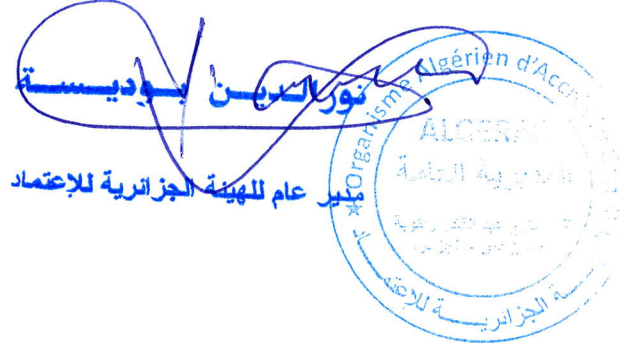 نور الدين بوديسة
مدير عام للهيئة الجزائرية للإعتماد
Organisme Algérien d'Accr
ALGERAC
المديرية العامة
ـة الجزائريـــة للإعتمـــاد